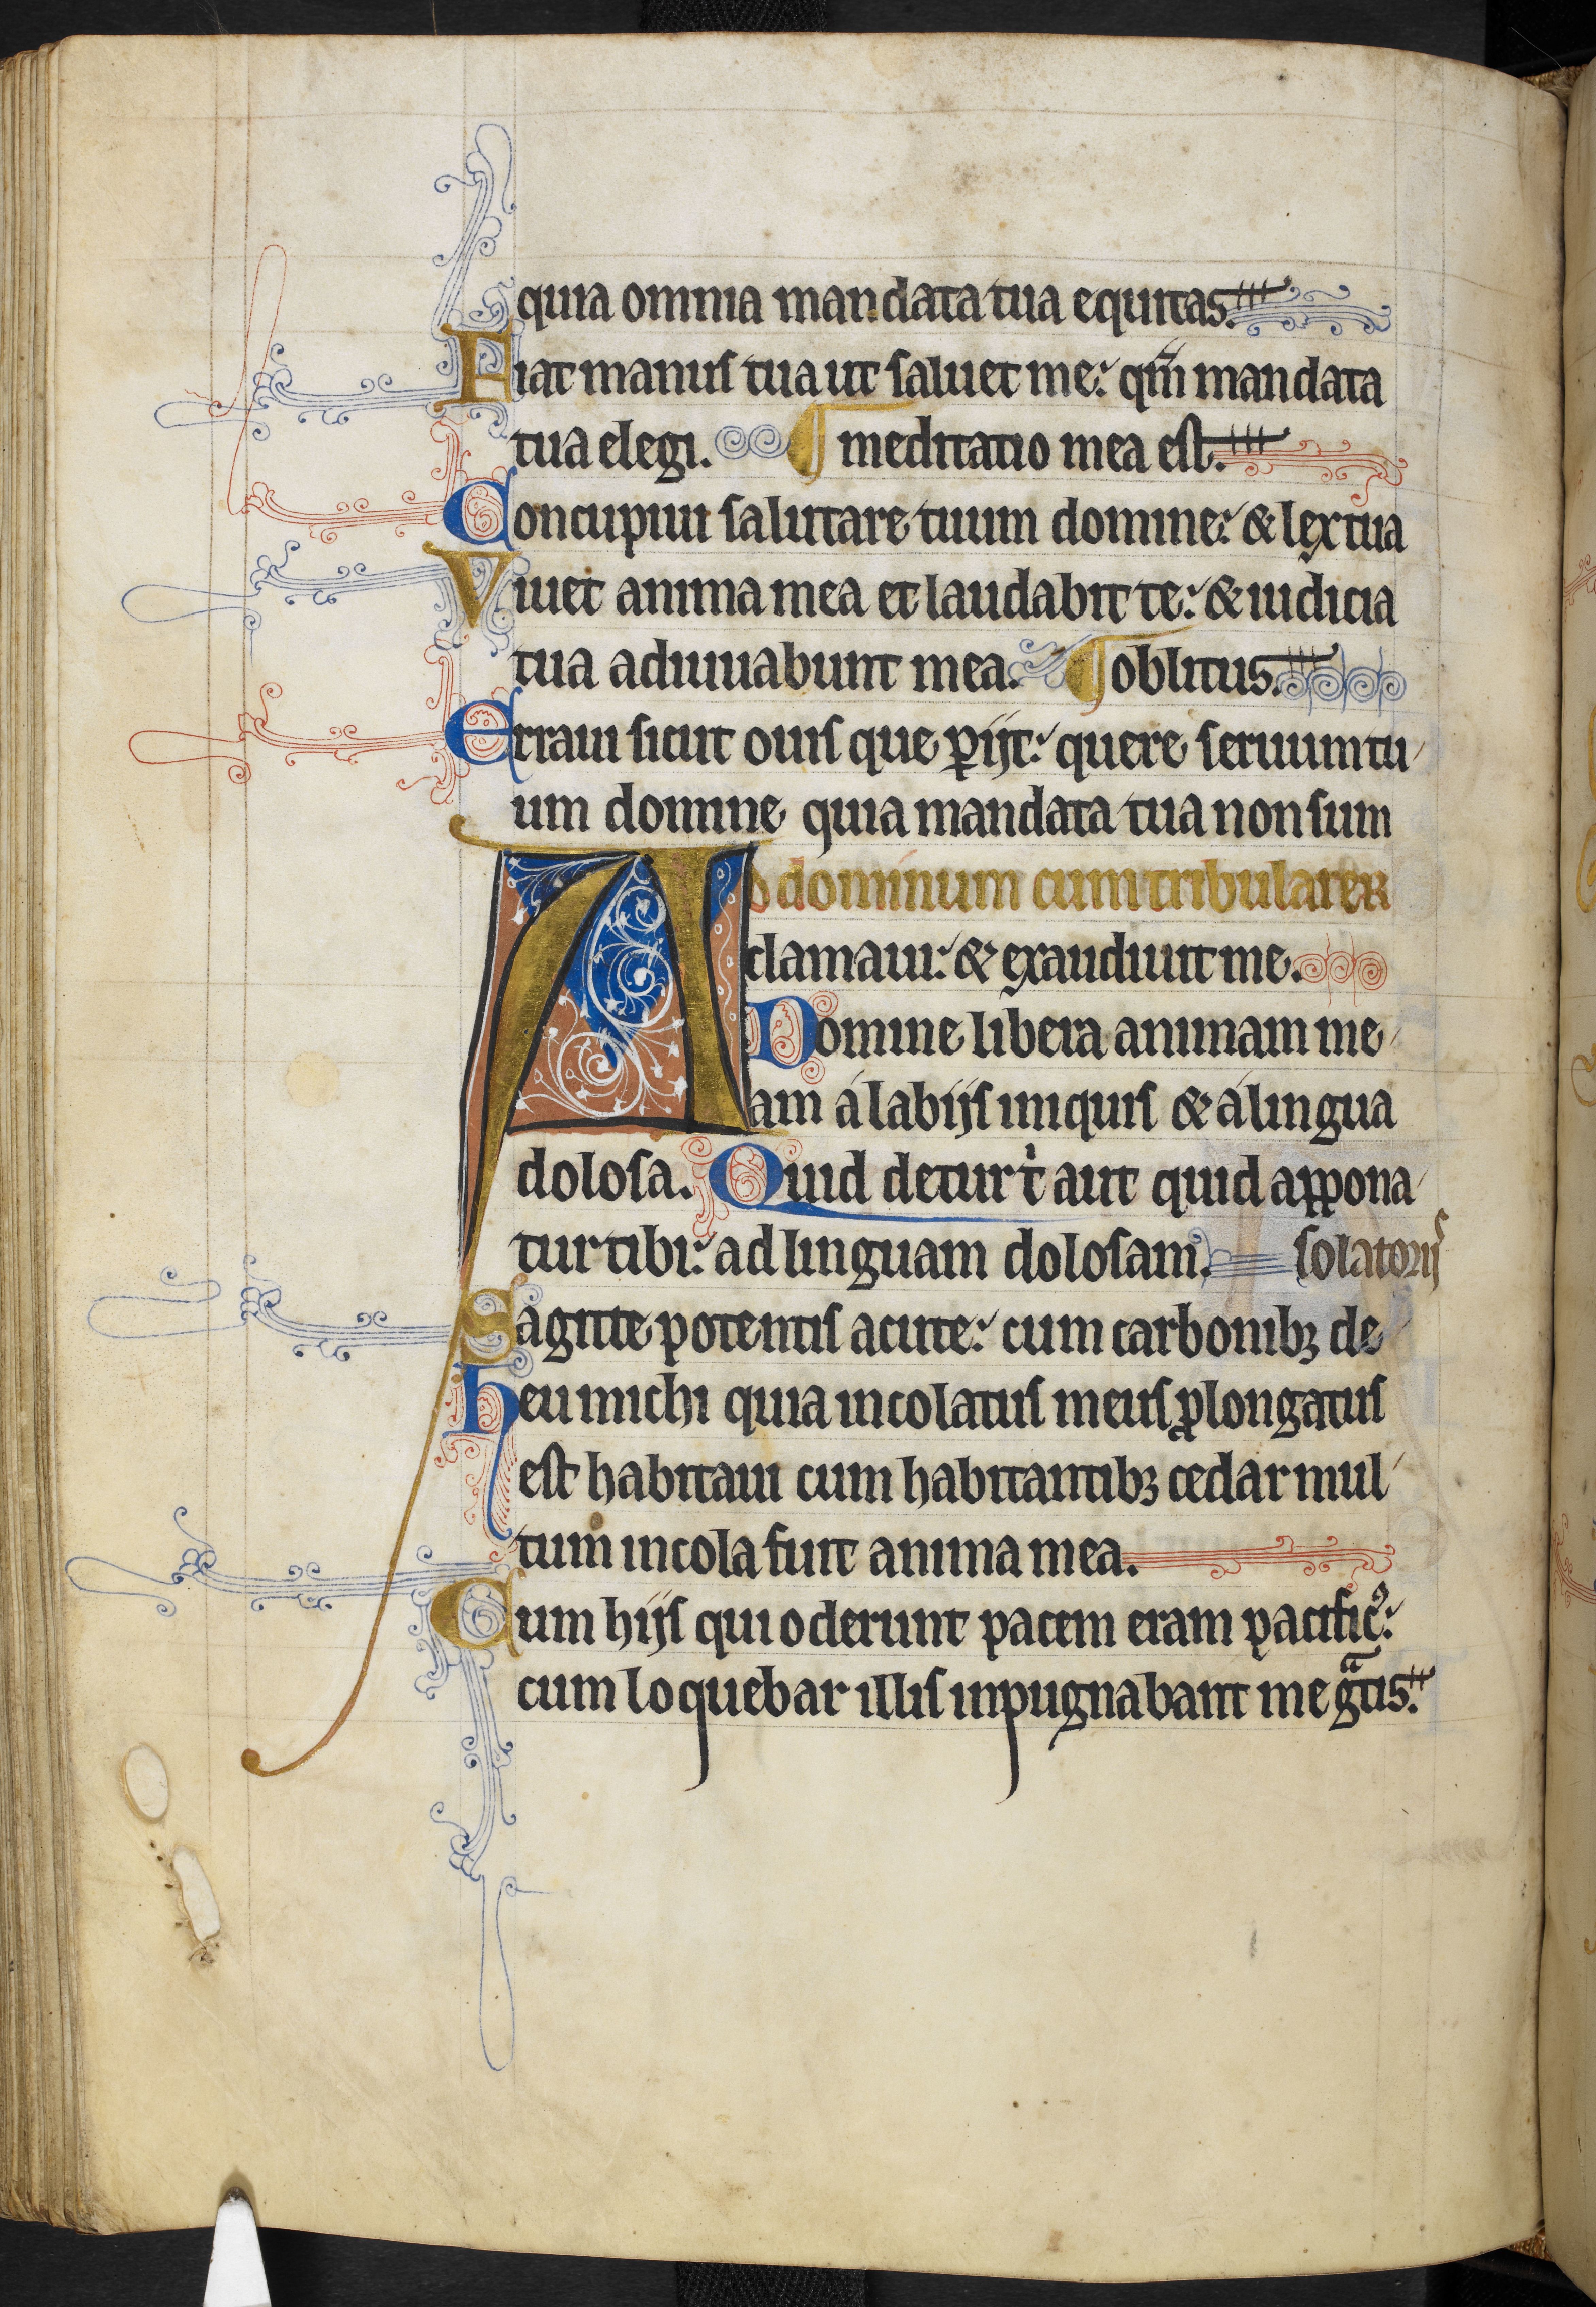 quia omnia mandata tua equitas.
Fiat manus tua ut saluet me: qm̄ mandata
tua elegi. ¶ meditatio mea est.
Concupiui salutare tuum domine: & lex tua
Viuet anima mea et laudabit te: & iudicia
tua adiuuabunt mea. ¶ oblitus.
Erraui sicut ouis que ꝑijt: quere seruum tu
um domine quia mandata tua non sum
AD dominum cum tribularer
clamaui: & exaudiuit me.
Domine libera animam me
am á labijs iniquis & á lingua
dolosa. Quid detur t̍ aut quid appona
tur tibi: ad linguam dolosam. solatorijs
Sagitte potentis acute: cum carbonibꝫ de
heu michi quia incolatus meus ꝓlongatus
est habitaui cum habitantibꝫ cedar mul
tum incola fuit anima mea.
Cum hijs qui oderunt pacem eram pacificꝰ:
cum loquebar illis inpugnabant me gͣtis.